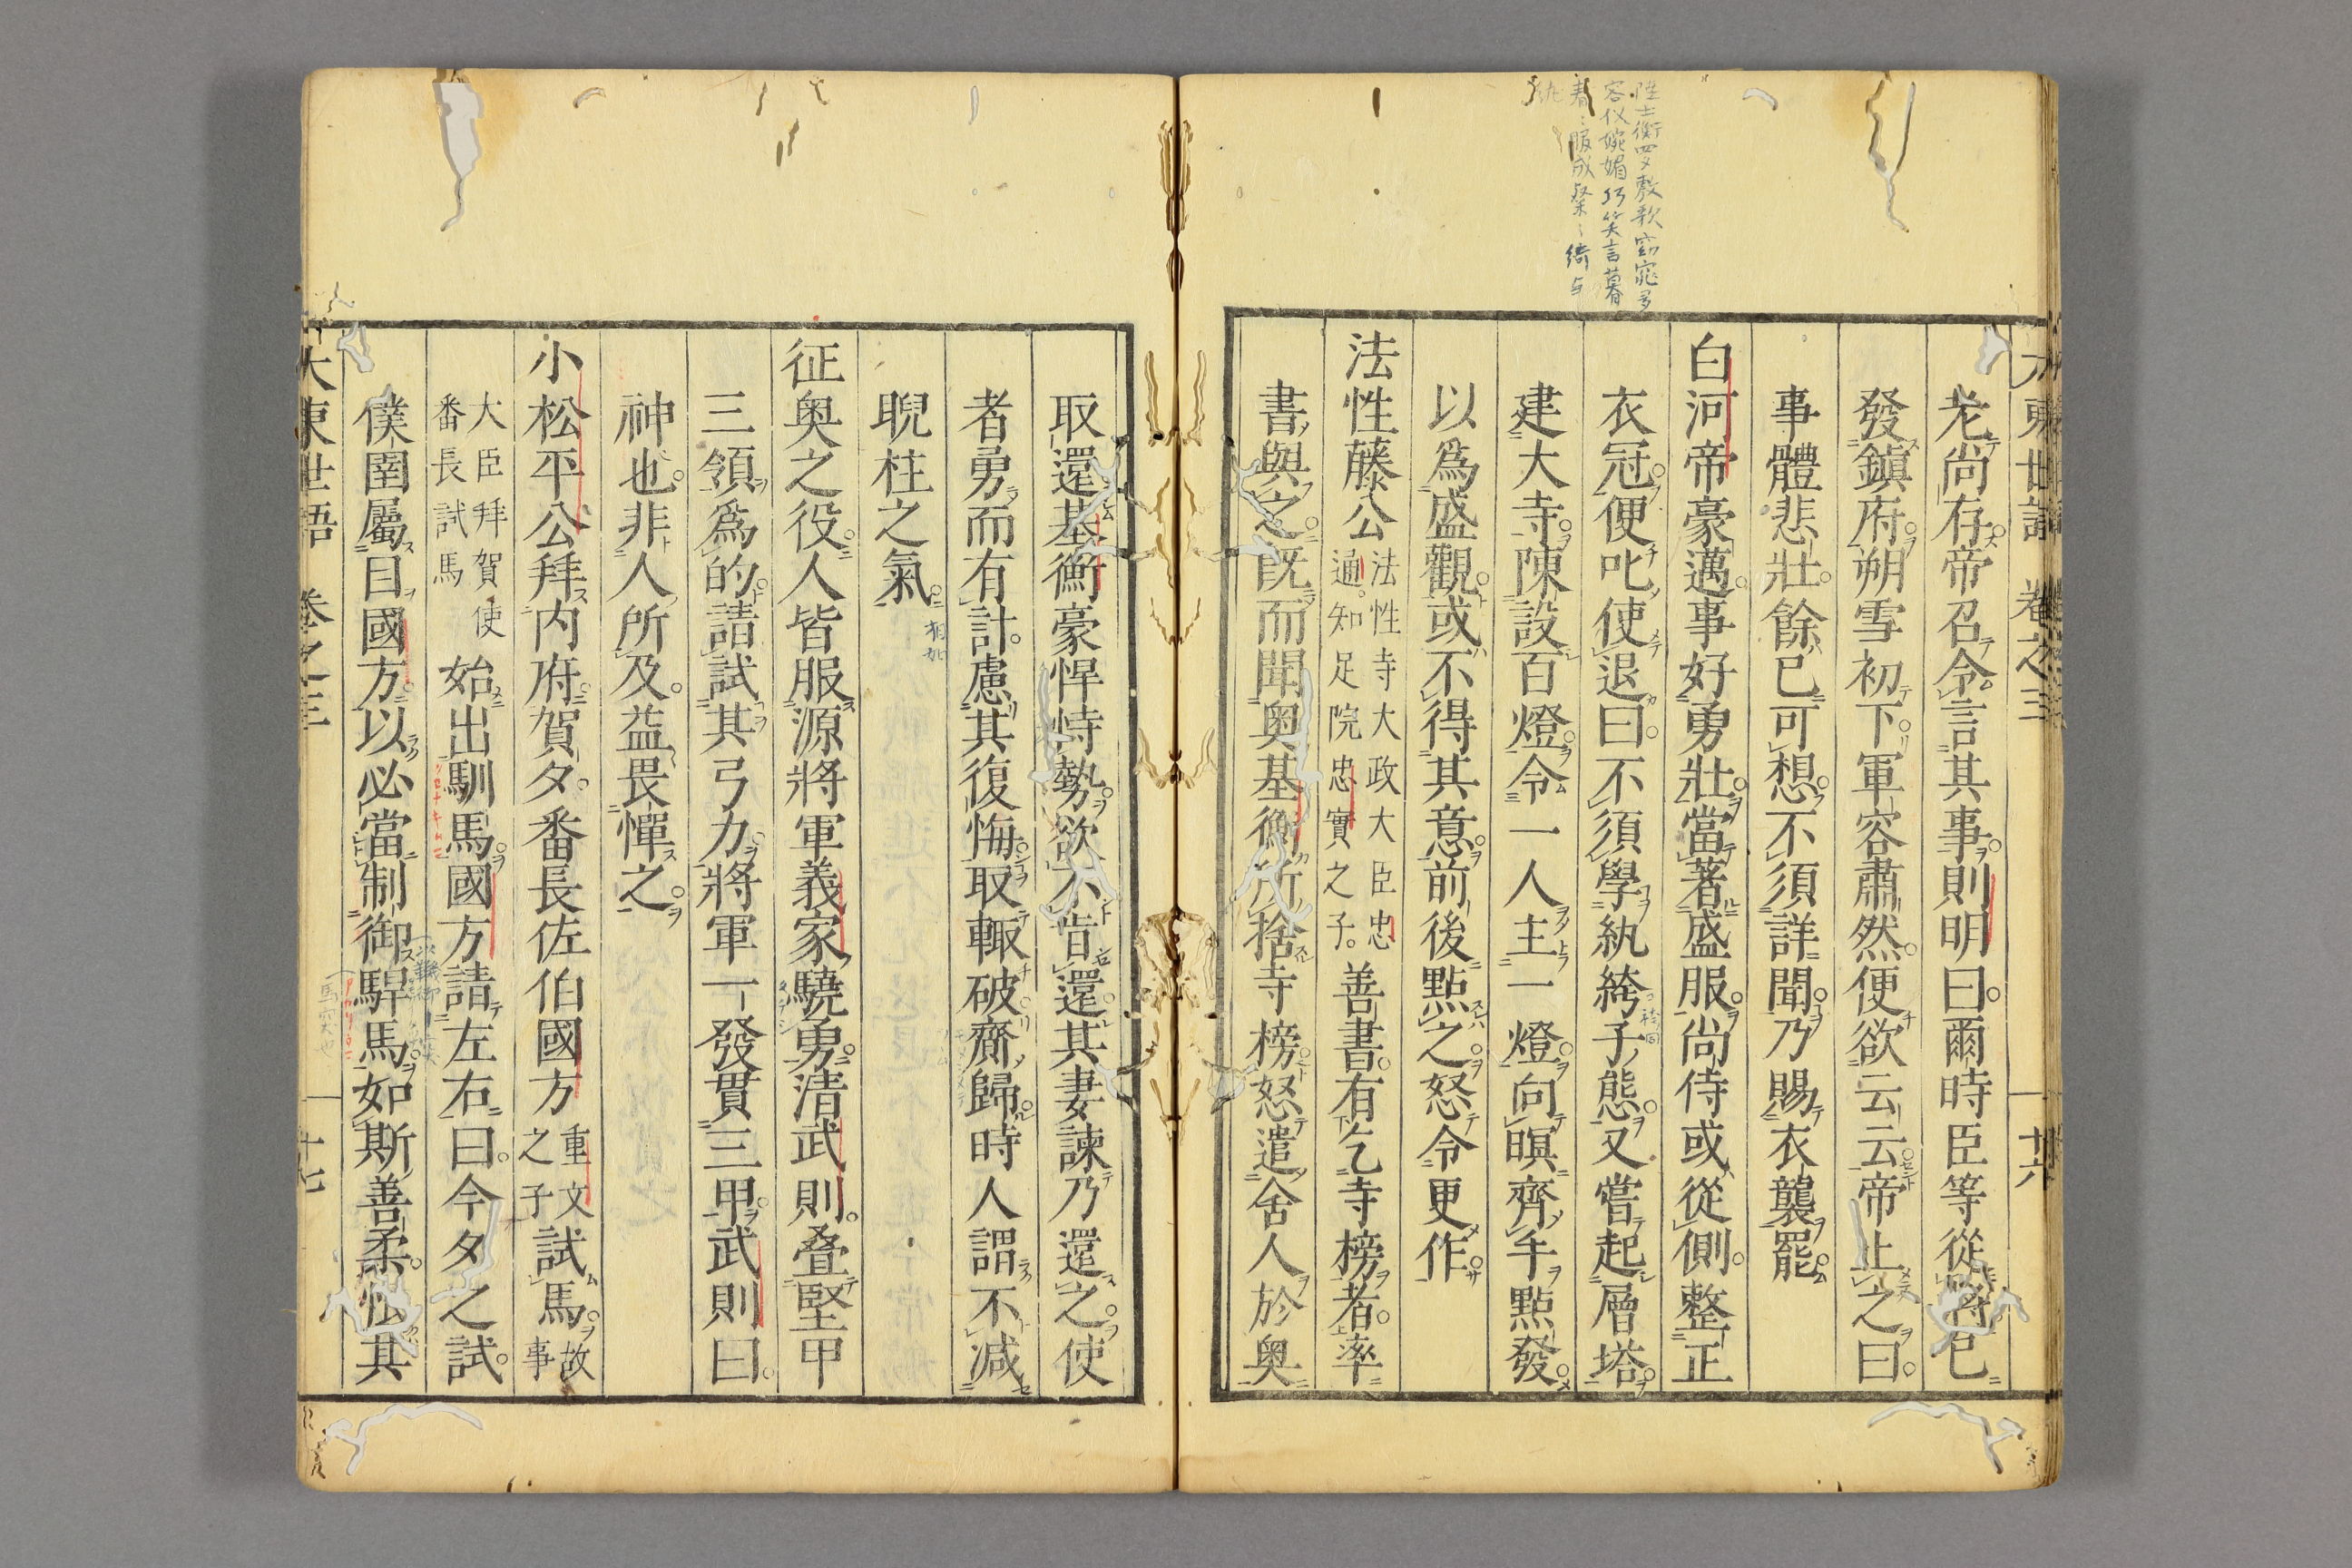 大東世語 卷之三 十六
老尚存帝召令言其事則明曰爾時臣等從 已
發鎮府朔雪初下軍容肅然便欲云云帝止之曰
事體悲壯餘已可想不須詳聞乃賜衣襲罷
白河帝豪邁事好勇壯當著盛服尚侍或從側整正
衣冠便叱使退曰不須學紈綺子態又嘗起層塔
建大寺陳設百燈令一人主一燈向暝齊手點發
以爲盛觀或不得其意前後點之怒令更作
法性藤公法性寺大政大臣忠通知足院忠實之子善書有乞寺榜者率
書與之既而聞奥基衡所捨寺榜怒遣舍人於奥
取還基衡豪悍恃勢欲不肯還其妻諫乃還之使
者勇而有計慮其復悔取輙破齎歸時人謂不減
睨柱之氣
征奥之役人皆服源將軍義家驍勇清武則叠堅甲
三領爲的請試其弓力將軍一發貫三甲武則曰
神也非人所及益畏憚之
小松平公拜内府賀夕番長佐伯國方重文之子試馬故事
大臣拜賀使番長試馬始出馴馬國方請左右曰今夕之試
僕圉屬目國方以必當制御駻馬如斯善柔 其
大東世語 卷之三 十七
陸士衡 歌窈窕多
容仪婉媚巧笑言暮
春 服成粲〻綺与